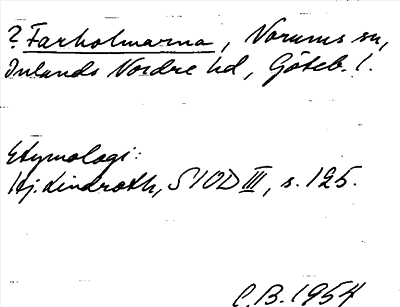 ? Farholmarna, Norums sn,
Inlands Nordre hd, Göteb. l.
Etymologi:
Hj. Lindroth, SIOD III, s. 125.
C.B. 1954